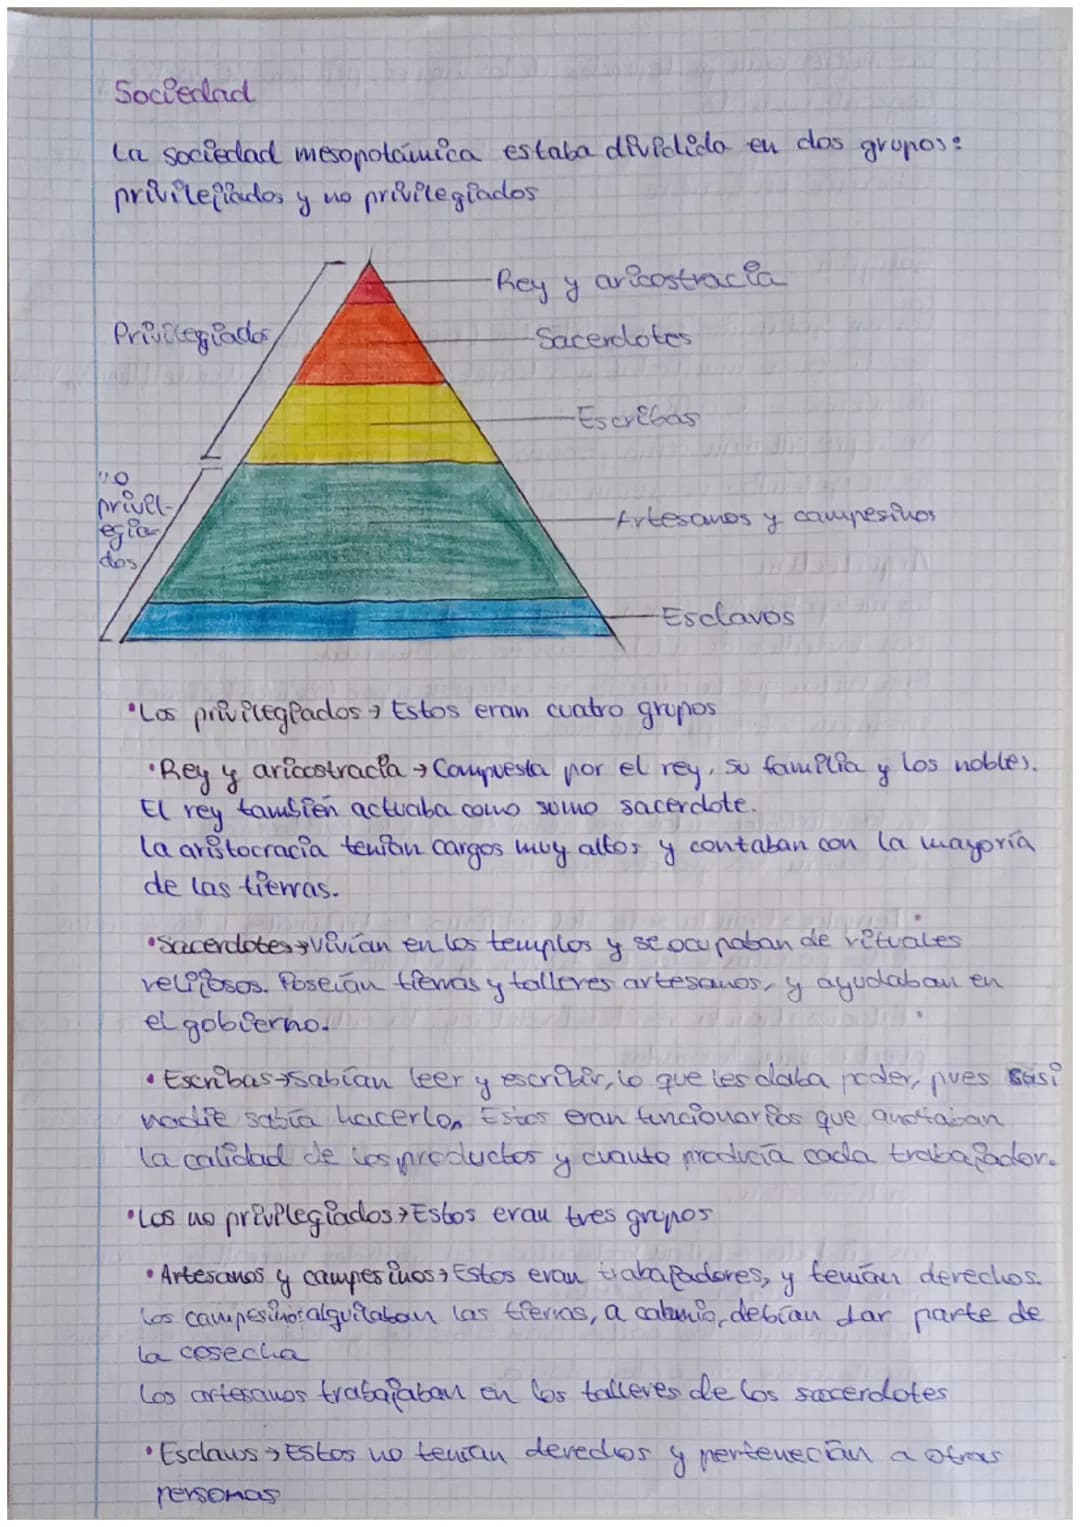 Sociedad
La sociedad mesopotámica estaba dividida en dos grupos:
privilejiados y no privilegiados
Rey y aricostracia
Privilegiados
Sacerdotes
Escribas
no
privil-
egia-
dos
Artesanos y campesinos
Esclavos
•Los privilegiados → Estos eran cuatro grupos
•Rey y aricostracia → Compuesta por el rey, su familia y los nobles.
El rey también actuaba como sumo sacerdote.
La aristocracia tenían cargos muy altos y contaban con la mayoría
de las tierras.
•Sacerdotes → Vivían en los templos y se ocupaban de rituales
religiosos. Poseían tierras y talleres artesanos, y ayudaban en
el gobierno.
•Escribas → Sabían leer y escribir, lo que les daba poder, pues casi
nadie sabía hacerlo. Estos eran funcionarios que anotaban
la calidad de los productos y cuanto producía cada trabajador.
•Los no privilegiados → Estos eran tres grupos
•Artesanos y campesinos → Estos eran trabajadores, y tenían derechos.
Los campesinos alquilaban las tierras, a cambio, debían dar parte de
la cosecha
Los artesanos trabajaban en los talleres de los sacerdotes
•Esclavos → Estos no tenían derechos y pertenecían a otras
personas